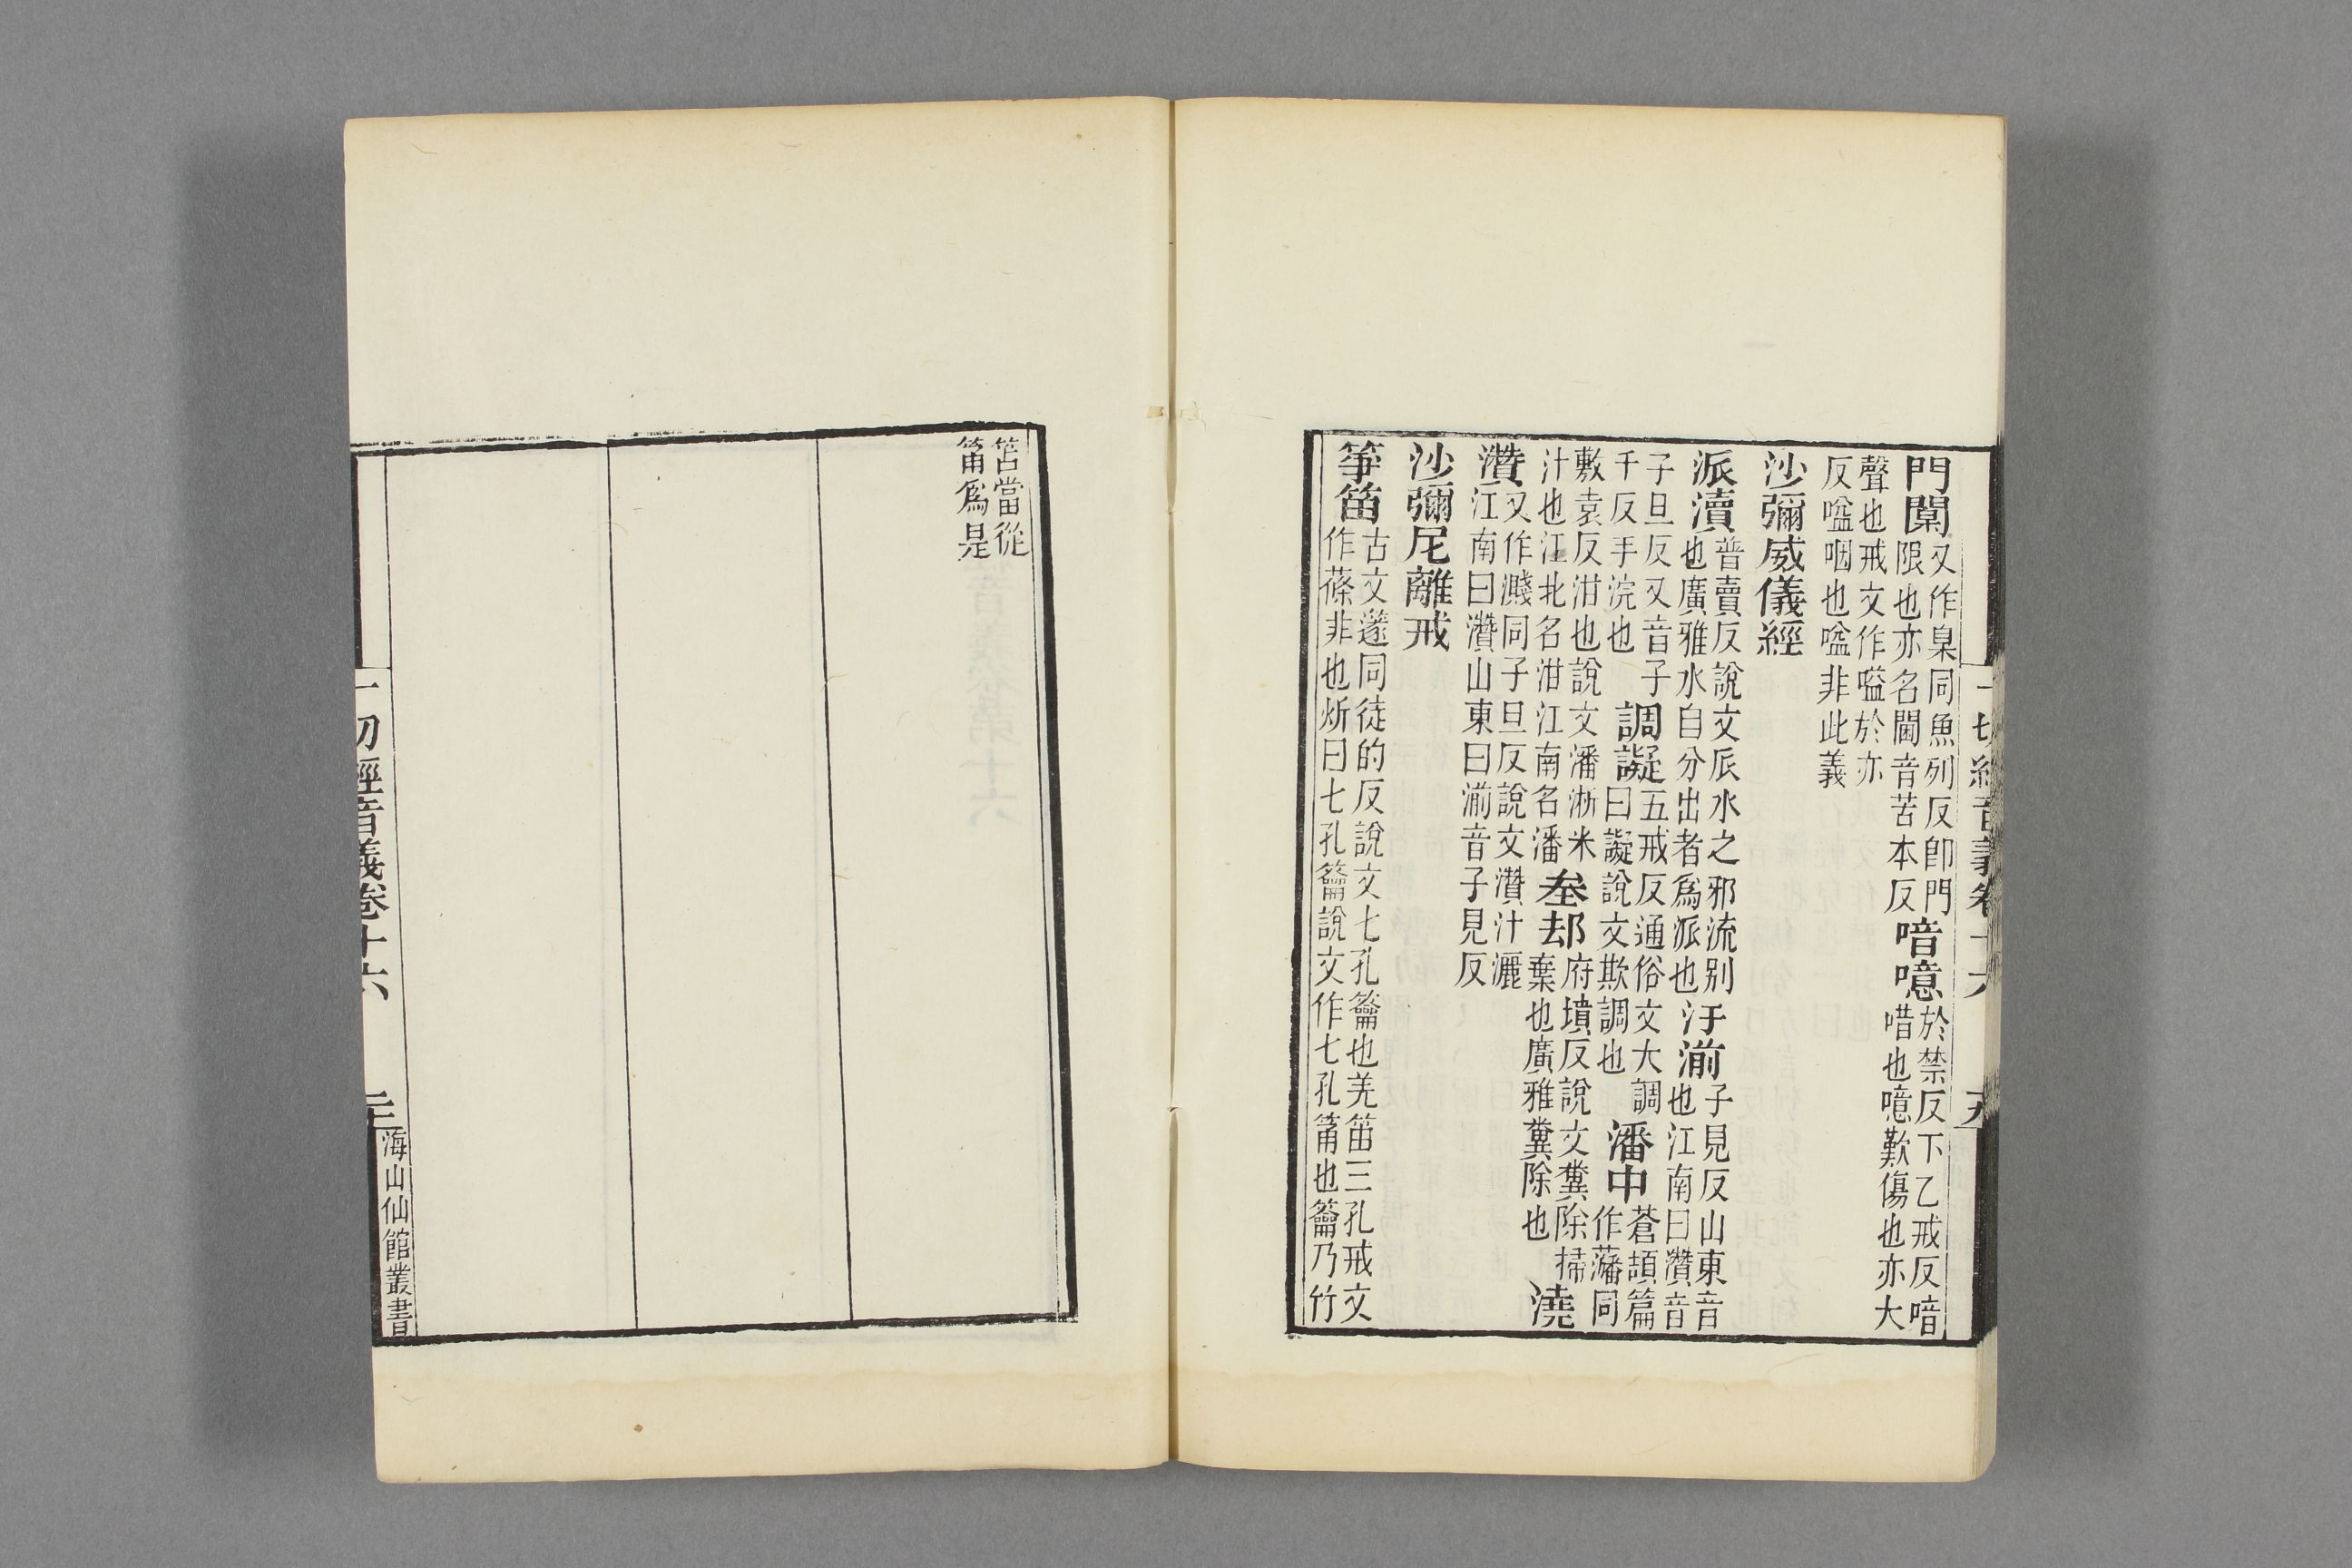 一切經音義卷十六
門闑又作臬同魚列反卽門限也亦名閫音苦本反喑噫於禁反下乙戒反喑唶也噫歎傷也亦大
聲也戒文作嗌於亦反嗌咽也嗌非此義
沙彌威儀經
派瀆普賣反說文𠂢水之邪流別也廣雅水自分出者爲派也汙湔子見反山東音也江南曰灒音
子旦反又音子千反手浣也調譺五戒反通俗文大調曰譺說文欺調也潘中蒼頡篇作藩同
敷袁反泔也說文潘淅米汁也江北名泔江南名潘坌却府墳反說文糞除掃棄也廣雅糞除也澆
灒又作濺同子旦反說文灒汁灑江南曰灒山東曰湔音子見反
沙彌尼離戒
箏笛古文篴同徒的反說文七孔籥也羌笛三孔戒文作蓧非也炘曰七孔籥說文作七孔筩也籥乃竹
笘當從筩爲是
一切經音義卷十六
海山仙館叢書